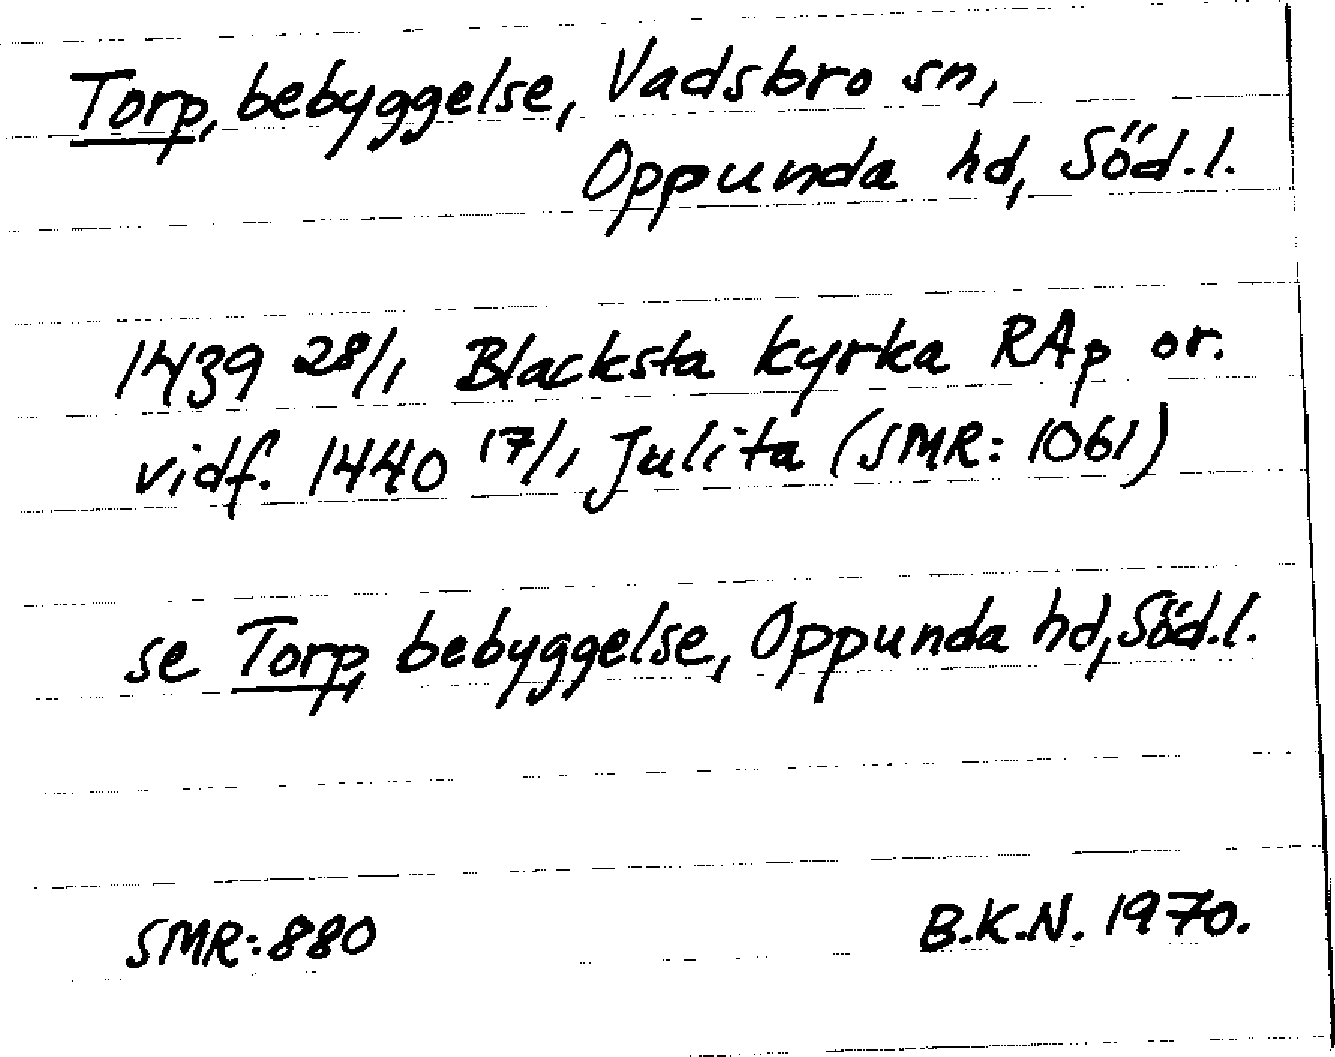 Torp, bebyggelse, Vadsbro sn,
Oppunda hd, Söd.l.
1439 28/1 Blacksta kyrka RAp or.
vidf. 1440 17/1 Julita (SMR: 1061)
se Torp, bebyggelse, Oppunda hd, Söd.l.
SMR: 880 B.K.N. 1970.